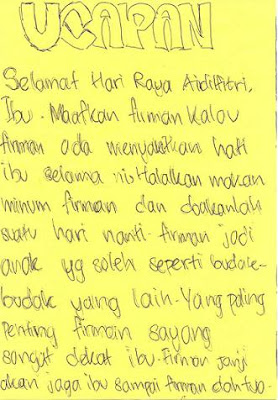 UCAPAN
Selamat Hari Raya Aidilfitri,
Ibu. Maafkan firman kalau
firman ada menyakitkan hati
ibu selama ni. Halalkan makan
minum firman dan doakanlah
suatu hari nanti. firman jadi
anak yg soleh seperti budak-
budak yang lain. Yang paling
penting firman sayang
sangat dekat ibu. Firman janji
akan jaga ibu sampai firman dah tua.